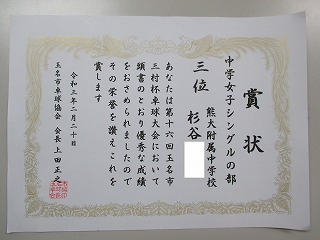 賞状
中学女子シングルの部
熊大附属中学校
三位 杉谷
あなたは第十六回玉名市
三村杯卓球大会において
頭書のとおり優秀な成績
をおさめられましたので
その栄誉を讃えこれを
賞します
令和三年二月二十日
玉名市卓球協会 会長 上田正之